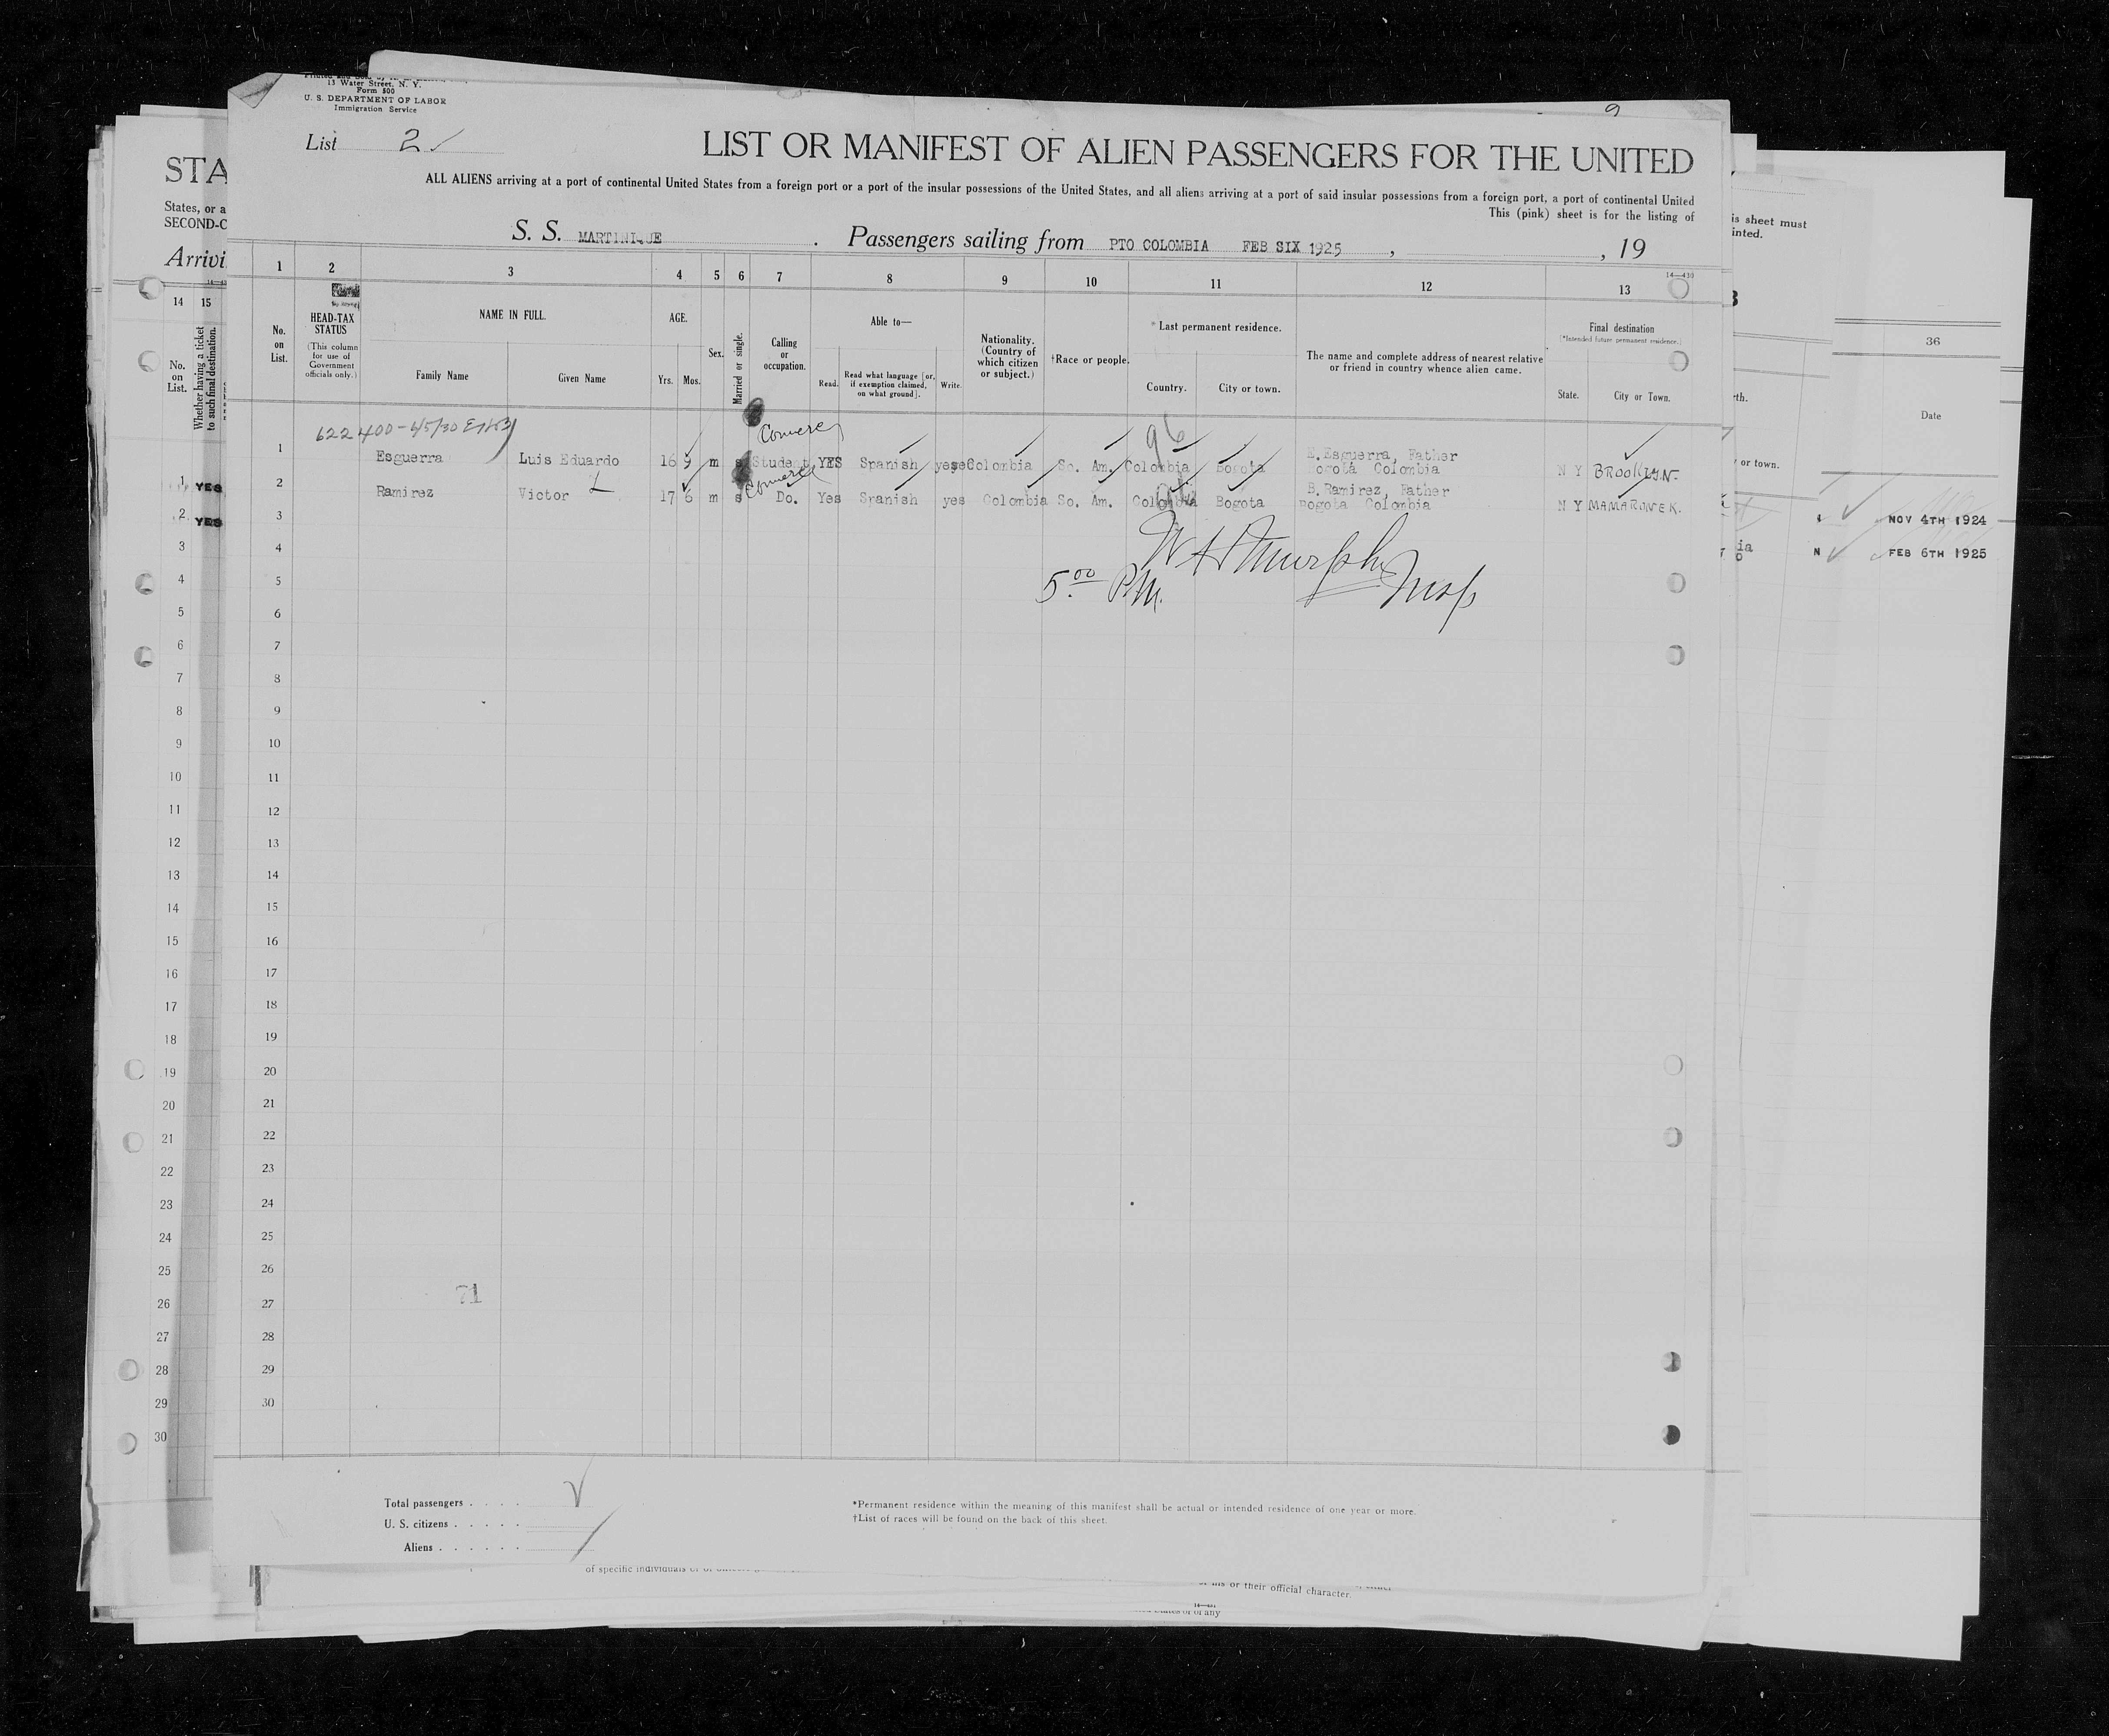 13 Water Street, N. Y.
Form 500
U. S. DEPARTMENT OF LABOR
Immigration Service
List 2
LIST OR MANIFEST OF ALIEN PASSENGERS FOR THE UNITED
ALL ALIENS arriving at a port of continental United States from a foreign port or a port of the insular possessions of the United States, and all aliens arriving at a port of said insular possessions from a foreign port, a port of continental United
This (pink) sheet is for the listing of
S. S. MARTINIQUE. Passengers sailing from PTO COLOMBIA FEB SIX 1925, , 19
1 2 3 4 5 6 7 8 9 10 11 12 13
No. on List.
HEAD-TAX STATUS
(This column for use of Government officials only.)
NAME IN FULL.
Family Name
Given Name
AGE.
Yrs. Mos.
Sex.
Married or single.
Calling or occupation.
Able to—
Read.
Read what language [or, if exemption claimed, on what ground].
Write.
Nationality. (Country of which citizen or subject.)
†Race or people.
*Last permanent residence.
Country.
City or town.
The name and complete address of nearest relative or friend in country whence alien came.
Final destination
(*Intended future permanent residence.)
State.
City or Town.
1 Esguerra Luis Eduardo 16 9 m s Student YES Spanish yes Colombia So. Am. Colombia Bogota E. Esguerra, Father Bogotá Colombia N Y BROOKLYN.
2 Ramirez Victor L 17 6 m s Do. Yes Spanish yes Colombia So. Am. Colombia Bogota B. Ramirez, Father Bogota Colombia N Y MAMARONEK.
96
5.00 P.M.
3
4
5
6
7
8
9
10
11
12
13
14
15
16
17
18
19
20
21
22
23
24
25
26
27
28
29
30
71
Total passengers
U. S. citizens
Aliens
*Permanent residence within the meaning of this manifest shall be actual or intended residence of one year or more.
†List of races will be found on the back of this sheet.
STA
States, or a
SECOND-C
Arrivi
14 15
No. on List.
Whether having a ticket to such final destination.
1 YES
2 YES
3
4
5
6
7
8
9
10
11
12
13
14
15
16
17
18
19
20
21
22
23
24
25
26
27
28
29
30
is sheet must
inted.
36
Date
or town.
NOV 4TH 1924
N FEB 6TH 1925
of specific individuals
or their official character.